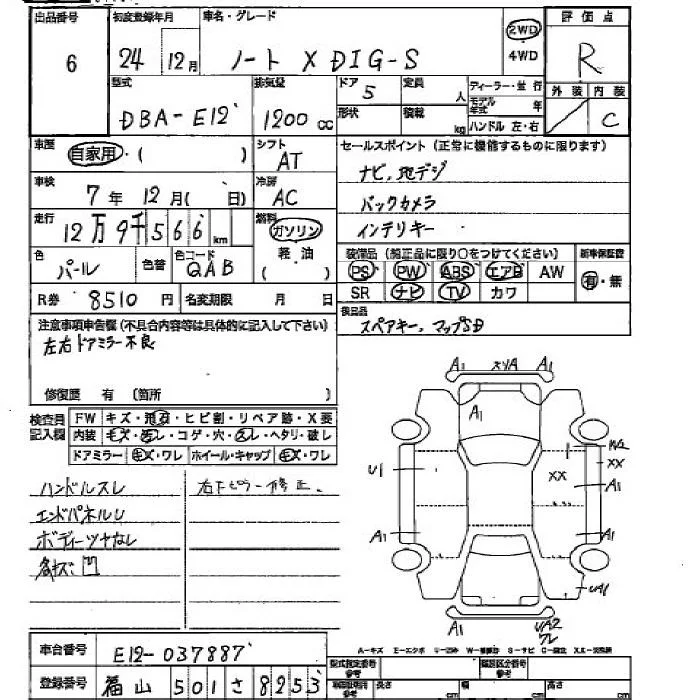 出品番号 初度登録年月 車名・グレード 評価点
6 24 12月 ノート X DIG-S 2WD 4WD R
型式 排気量 ドア 5 定員 人 ディーラー・並行 外装 内装
DBA-E12 1200 cc 形状 積載 kg モデル年式 年 C
ハンドル 左・右
車歴 自家用・( ) シフト AT セールスポイント(正常に機能するものに限ります)
車検 7年 12月( 日) 冷房 AC ナビ、地デジ
バックカメラ
走行 12万9千566km 燃料 ガソリン 軽油 ( ) インテリキー
色 パール 色替 色コード QAB 装備品(純正品に限り○をつけてください) 新車保証書
PS PW ABS エアB AW 有・無
R券 8510円 名変期限 月 日 SR ナビ TV カワ
注意事項申告欄(不具合内容等は具体的に記入して下さい) 後日品
左右ドアミラー不良 スペアキー、マップSD
修復歴 有 (箇所 )
検査員記入欄 FW キズ・飛石・ヒビ割・リペア跡・X要
内装 キズ・汚レ・コゲ・穴・スレ・ヘタリ・破レ
ドアミラー キズ・ワレ ホイール・キャップ キズ・ワレ
ハンドルスレ 右下ピラー修正、
エンドパネルU
ボディーツヤなし
各キズ凹
A1 A1
A1
XX
U1 XX A1
A1 A1
UA1
A1 UA2
ワレ
A-キズ E-エクボ
車台番号 E12-037887
登録番号 福山 501 さ 8253
型式指定番号 参考 類別区分番号 参考
長さ cm 幅 cm 高さ cm